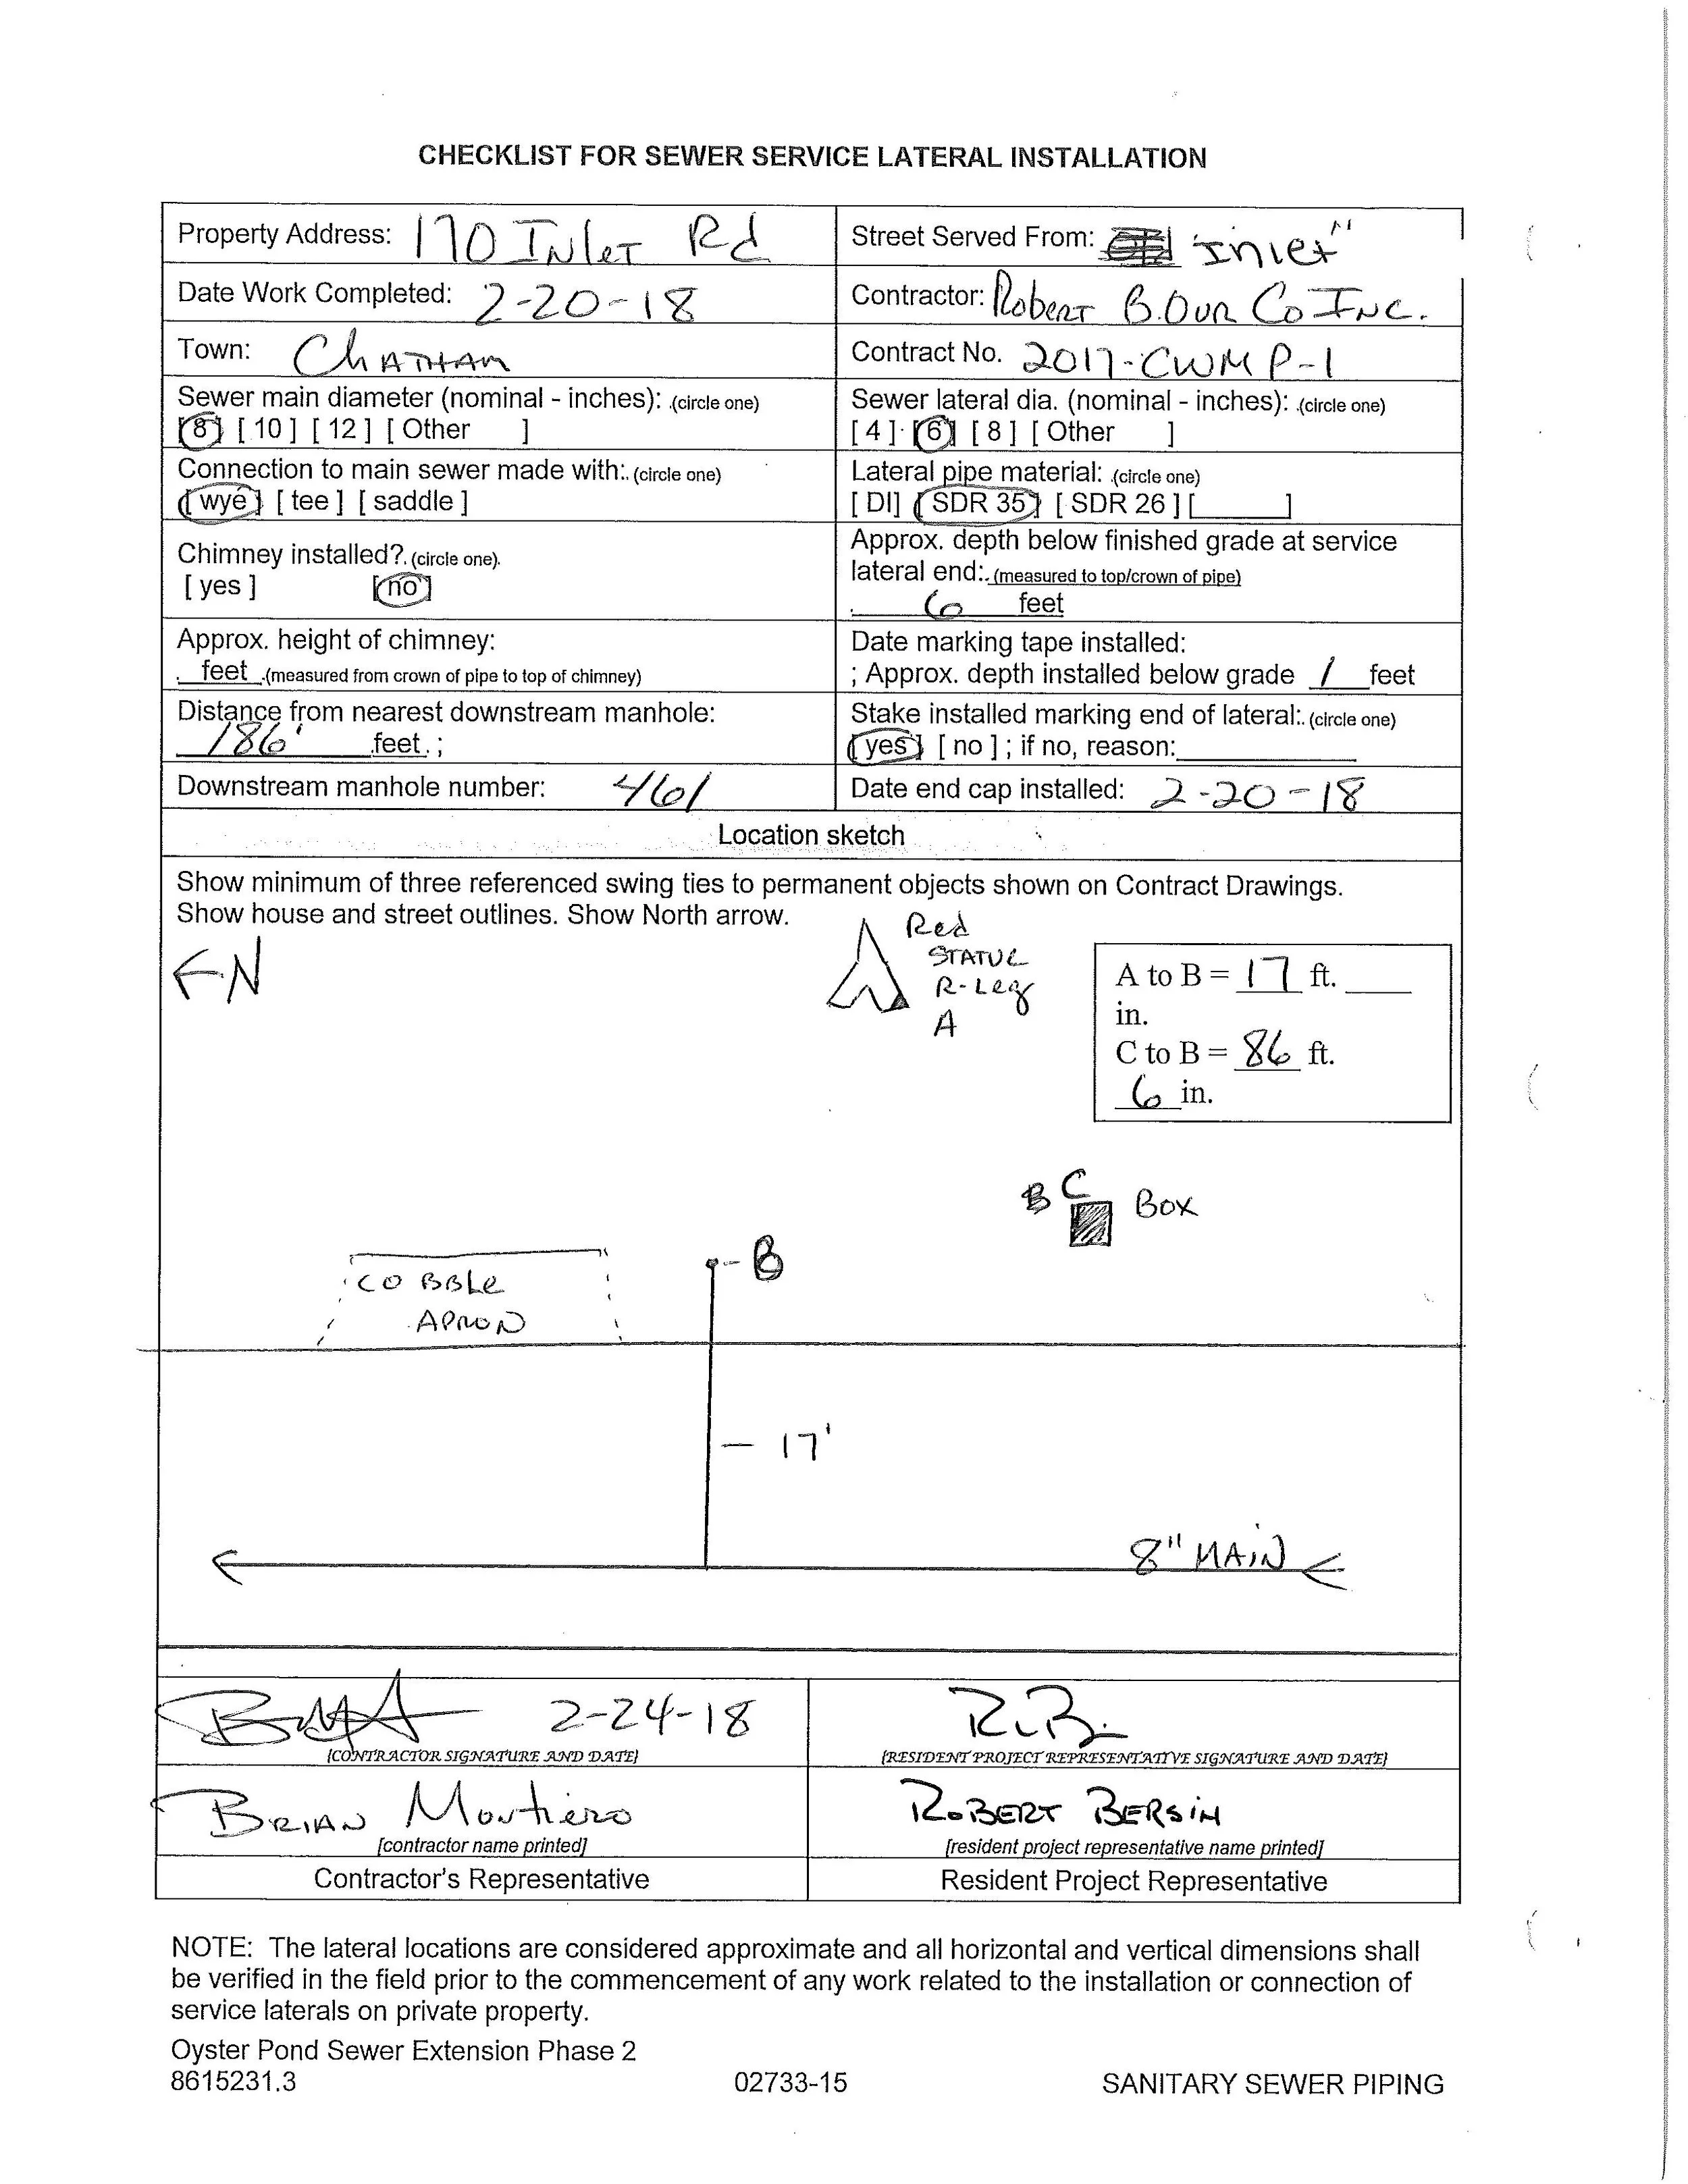 CHECKLIST FOR SEWER SERVICE LATERAL INSTALLATION
Property Address: 170 Inlet Rd
Street Served From: Inlet"
Date Work Completed: 2-20-18
Contractor: Robert B. Our Co Inc.
Town: Chatham
Contract No. 2017-CWMP-1
Sewer main diameter (nominal - inches): (circle one)
[8] [10] [12] [Other ]
Sewer lateral dia. (nominal - inches): (circle one)
[4] [6] [8] [Other ]
Connection to main sewer made with: (circle one)
[wye] [tee] [saddle]
Lateral pipe material: (circle one)
[DI] [SDR 35] [SDR 26] [ ]
Chimney installed? (circle one).
[yes] [no]
Approx. depth below finished grade at service
lateral end: (measured to top/crown of pipe)
6 feet
Approx. height of chimney:
feet (measured from crown of pipe to top of chimney)
Date marking tape installed:
; Approx. depth installed below grade 1 feet
Distance from nearest downstream manhole:
186' feet ;
Stake installed marking end of lateral: (circle one)
[yes] [no] ; if no, reason:
Downstream manhole number: 461
Date end cap installed: 2-20-18
Location sketch
Show minimum of three referenced swing ties to permanent objects shown on Contract Drawings.
Show house and street outlines. Show North arrow.
N
Red
Statue
R-Leg
A
A to B = 17 ft.
in.
C to B = 86 ft.
6 in.
B C Box
B
Cobble
Apron
17'
8" MAIN
2-24-18
[CONTRACTOR SIGNATURE AND DATE]
[RESIDENT PROJECT REPRESENTATIVE SIGNATURE AND DATE]
Brian
[contractor name printed]
ROBERT BERSIN
[resident project representative name printed]
Contractor's Representative
Resident Project Representative
NOTE: The lateral locations are considered approximate and all horizontal and vertical dimensions shall
be verified in the field prior to the commencement of any work related to the installation or connection of
service laterals on private property.
Oyster Pond Sewer Extension Phase 2
8615231.3 02733-15 SANITARY SEWER PIPING